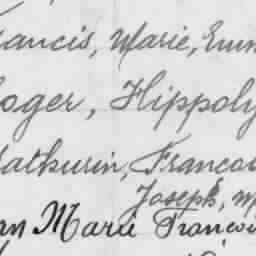 rancis, Marie, Emm
oger, Hippoly
Mathurin, Francoi
Joseph, M
an Marie Francoi